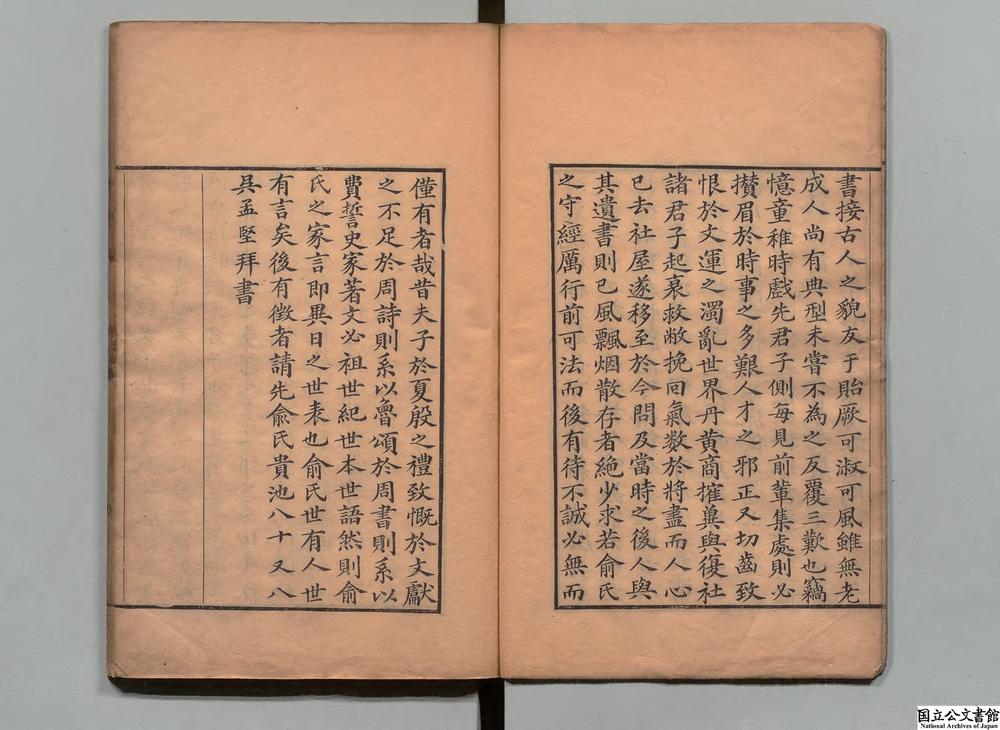 書接古人之貌友于貽厥可淑可風雖無老
成人尚有典型未嘗不為之反覆三歎也竊
憶童稚時戲先君子側每見前輩集處則必
攅眉於時事之多艱人才之邪正又切齒致
恨於文運之濁亂世界丹黄商搉兾與復社
諸君子起衰救敝挽回氣數於將盡而人心
已去社屋遂移至於今問及當時之後人與
其遺書則已風飄烟散存者絶少求若俞氏
之守經厲行前可法而後有待不誠必無而
僅有者哉昔夫子於夏殷之禮致慨於文獻
之不足於周詩則系以魯頌於周書則系以
費誓史家著文必祖世紀世本世語然則俞
氏之家言即異日之世表也俞氏世有人世
有言矣後有徴者請先俞氏貴池八十又八
吳孟堅拜書
国立公文書館
National Archives of Japan